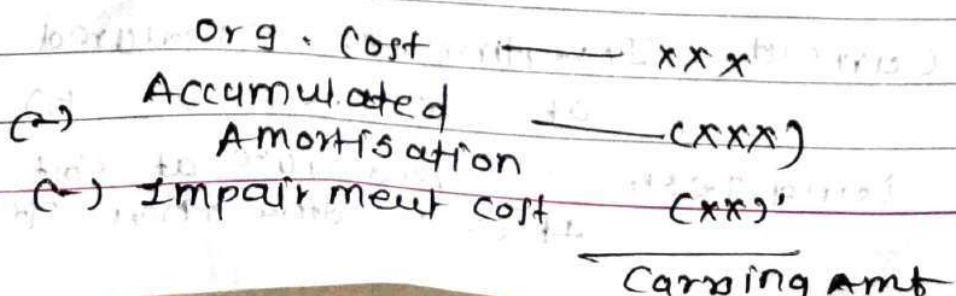 Org. Cost — xxx
(-) Accumulated
Amortisation — (xxx)
(-) Impairment cost (xx)
Carrying Amt